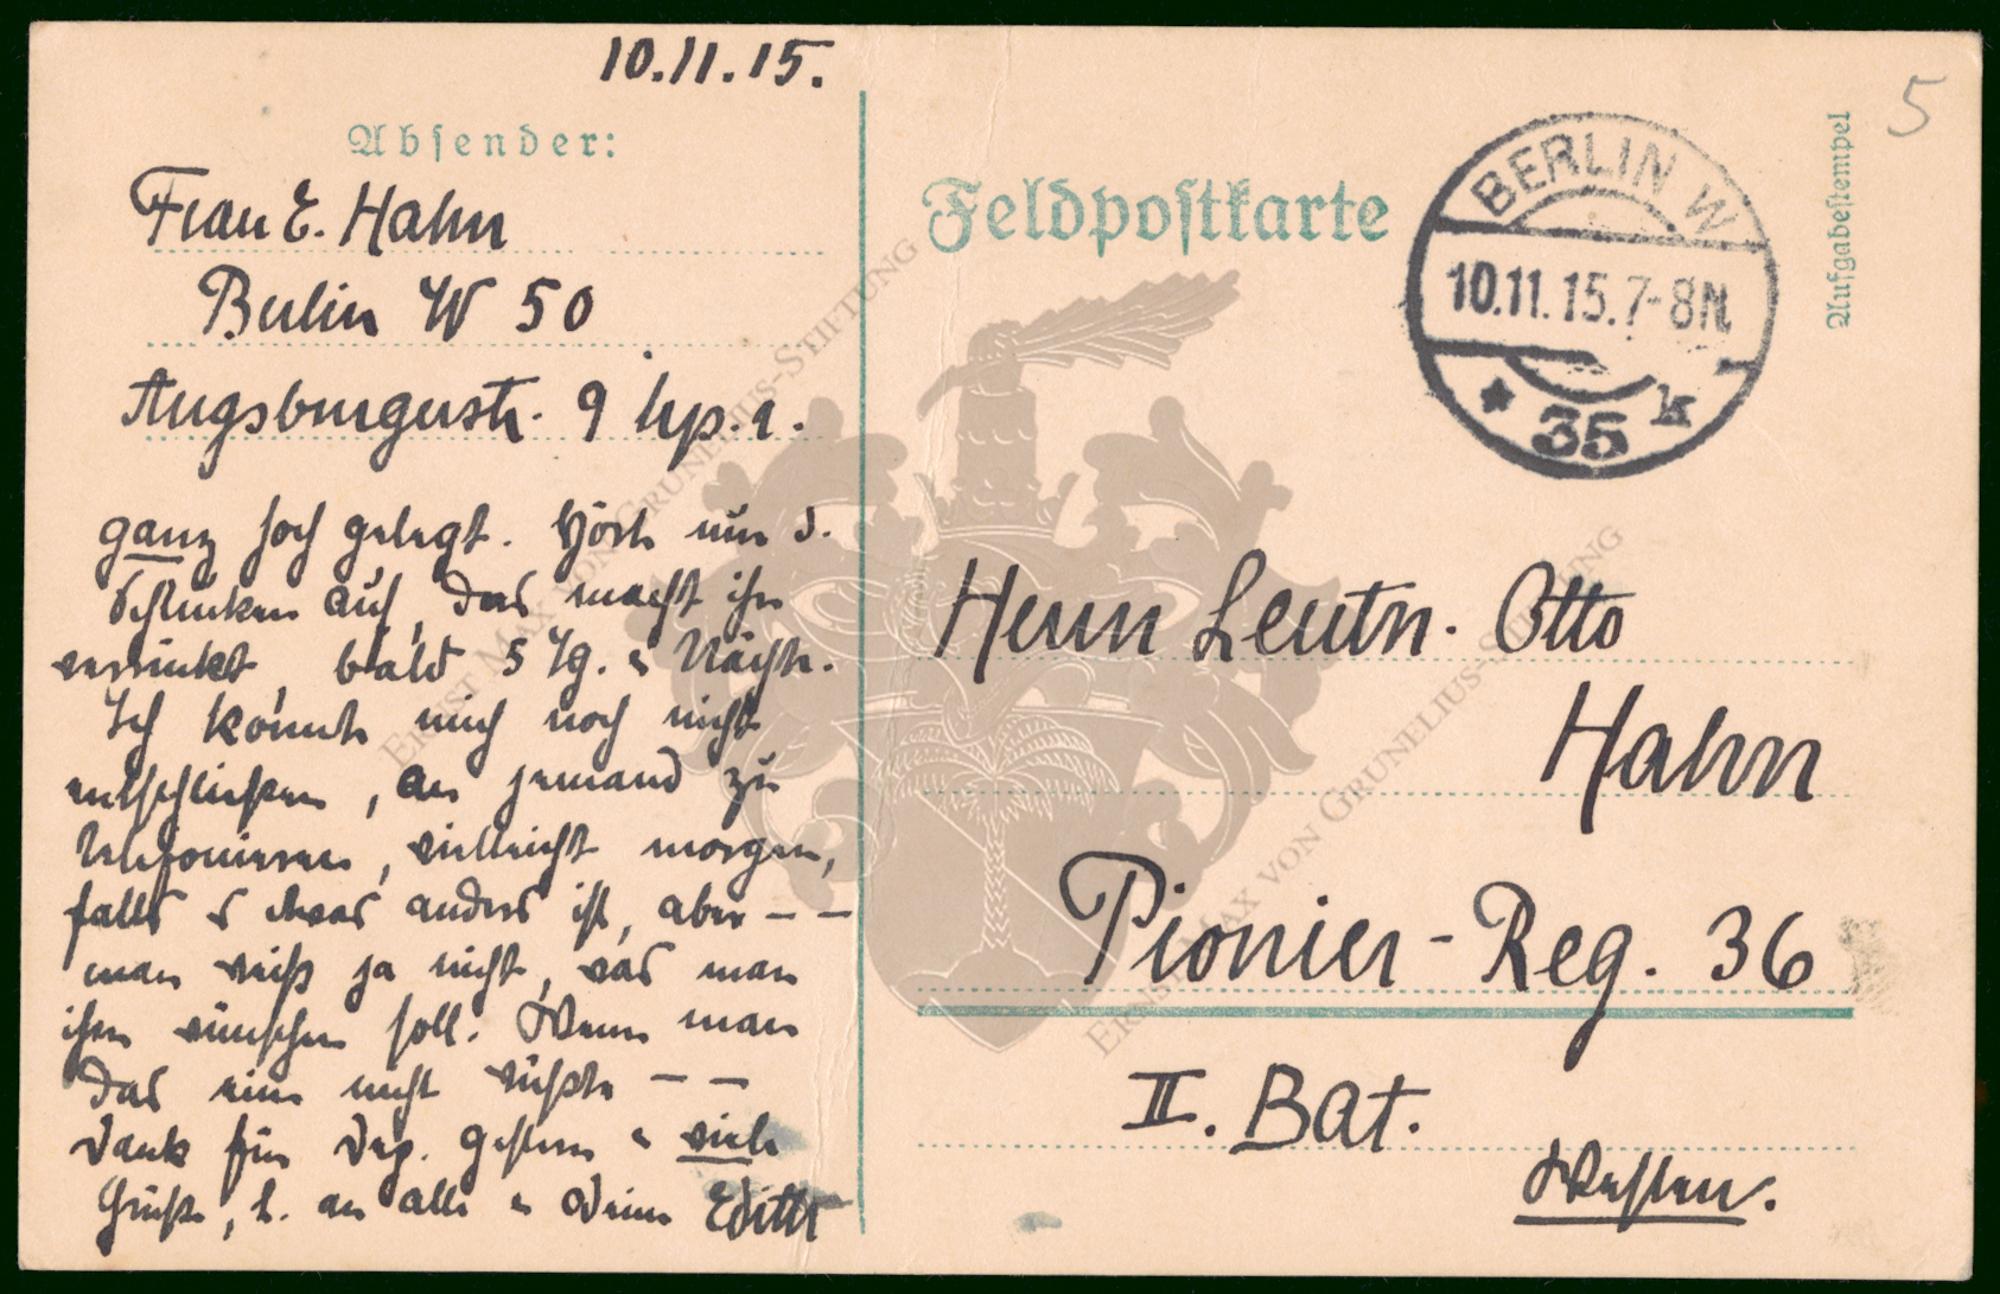 10.11.15.
Absender:
Frau E. Hahn
Berlin W 50
Augsburgerstr. 9 hp. r.
ganz hoch gelegt. Hört nun d.
Schlucken auf, das macht ihn
verrückt, bald 5 Tg. u. Nächte.
Ich konnte mich noch nicht
entschließen, an jemand zu
telefonieren, vielleicht morgen,
falls es etwas anders ist, aber – –
man weiß ja nicht, was man
ihm wünschen soll. Wenn man
das nun nicht wüßte – –
Dank für Dep. gestern u. viele
Grüße, h. an alle u. Deine Edith
Feldpostkarte
Aufgabestempel
5
BERLIN W
10.11.15.7-8N
* 35 k
Herrn Leutn. Otto
Hahn
Pionier-Reg. 36
II. Bat.
Westen.
ERNST MAX VON GRUNELIUS-STIFTUNG
ERNST MAX VON GRUNELIUS-STIFTUNG